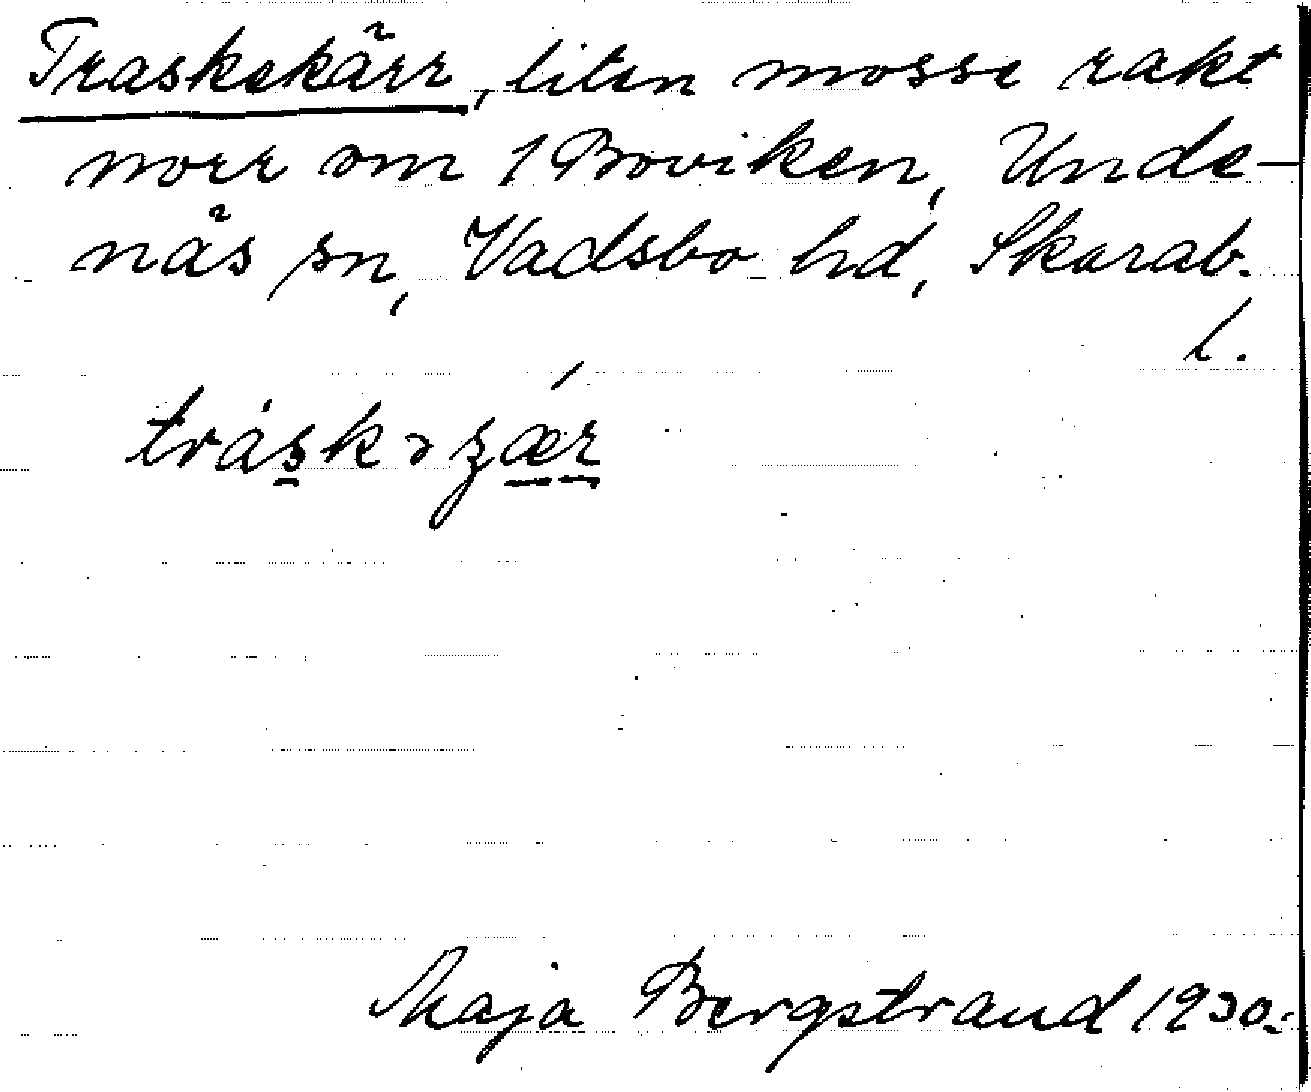 Traskekärr, liten mosse rakt
norr om 1 Boviken, Unde-
näs sn, Vadsbo hd, Skarab.
l.
tráskəʒǽr
Maja Bergstrand 1930.